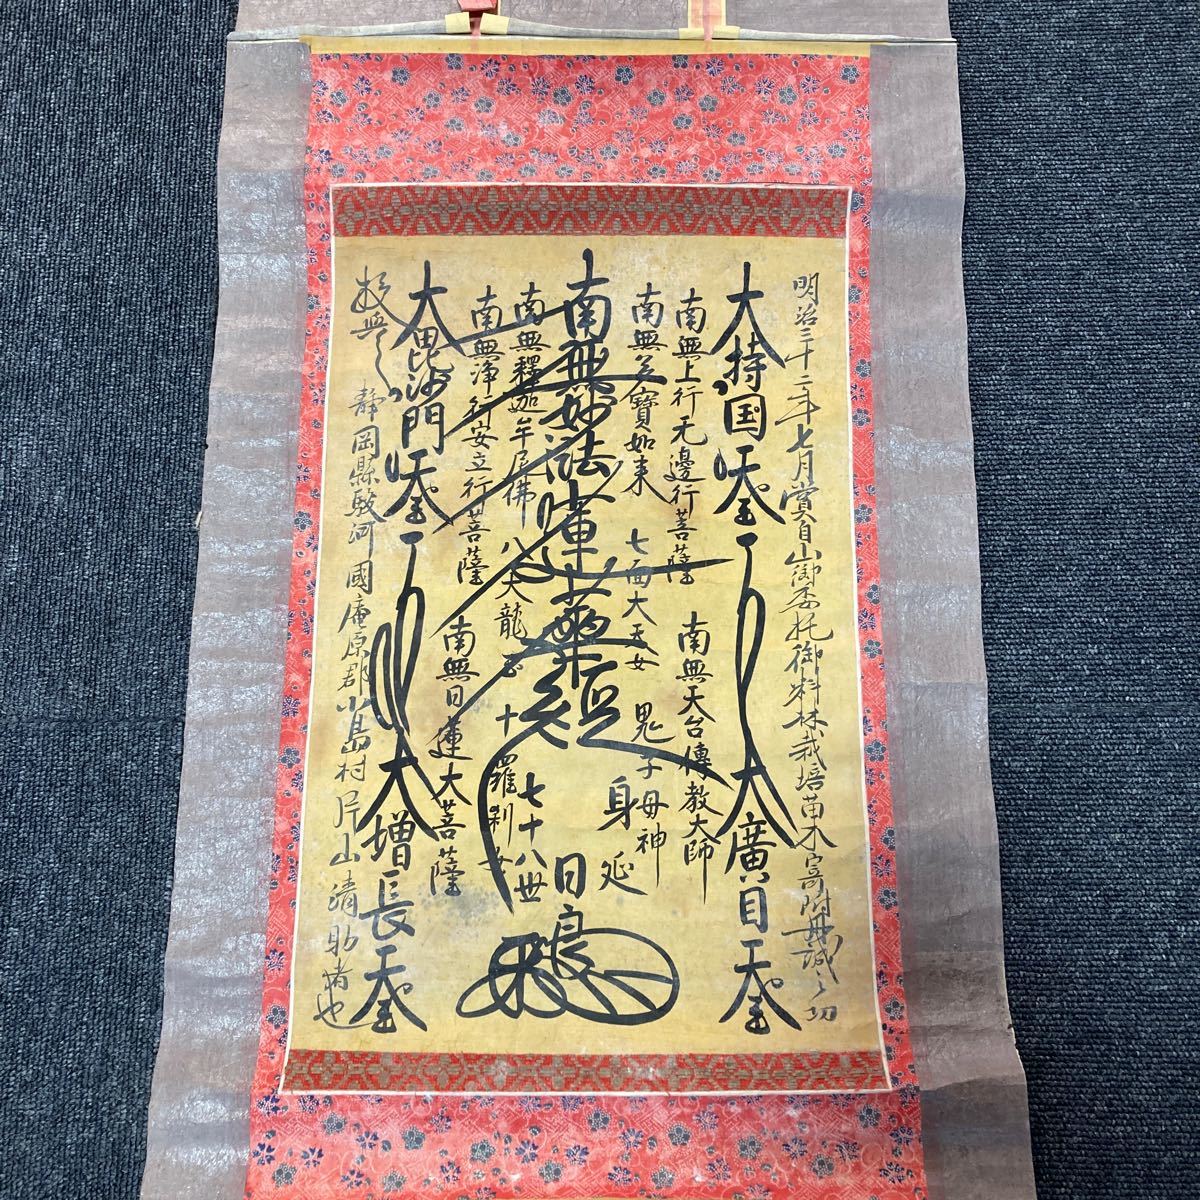 明治三十二年七月賞自山御委托御料林栽培苗木寄附丹誠之切
大持国天王
大廣目天王
南無上行无邊行菩薩
南無天台傳教大師
南無多寶如来
七面大天女
鬼子母神
南無妙法蓮華経
身延
七十八世
日良
南無釋迦牟尼佛
八大龍王
十羅刹女
南無浄行安立行菩薩
南無日蓮大菩薩
大毘沙門天王
大増長天王
授與之
静岡縣駿河國庵原郡小島村片山清助者也